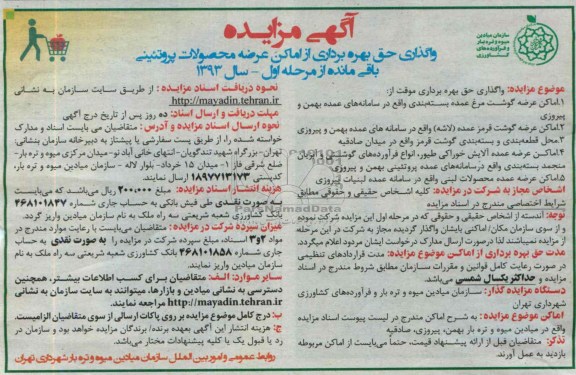 آگهی مزایده
واگذاری حق بهره برداری از اماکن عرضه محصولات پروتئینی
باقی مانده از مرحله اول - سال ۱۳۹۳
سازمان میادین
میوه و تره بار
و فرآورده‌های
کشاورزی
موضوع مزایده: واگذاری حق بهره برداری موقت از:
۱.اماکن عرضه گوشت مرغ عمده بسته‌بندی واقع در سامانه‌های عمده بهمن و
پیروزی
۲.اماکن عرضه گوشت قرمز عمده (لاشه) واقع در سامانه های عمده بهمن و پیروزی
۲.محل قطعه‌بندی و بسته‌بندی گوشت قرمز واقع در میدان صادقیه
۴.اماکن عرضه عمده آلایش خوراکی طیور، انواع فرآورده‌های گوشتی و آبزیان
منجمد بسته‌بندی واقع در سامانه‌های عمده پروتئینی بهمن و پیروزی
۵.اماکن عرضه عمده محصولات لبنی واقع در سامانه عمده لبنیات پیروزی
اشخاص مجاز به شرکت در مزایده: کلیه اشخاص حقیقی و حقوقی مطابق
شرایط اختصاصی مندرج در اسناد مزایده
توجه: آندسته از اشخاص حقیقی و حقوقی که در مرحله اول این مزایده شرکت نموده
و از سوی سازمان مکان/اماکنی بایشان واگذار گردیده مجاز به شرکت در این مرحله
از مزایده نمیباشند لذا درصورت ارسال مدارک درخواست ایشان مردود اعلام میگردد.
مدت حق بهره برداری از اماکن موضوع مزایده: مدت قراردادهای تنظیمی
در صورت رعایت کامل قوانین و مقررات سازمان مطابق شروط مندرج در اسناد
مزایده و حداکثر یکسال شمسی می‌باشد.
دستگاه مزایده گذار: سازمان میادین میوه و تره بار و فرآورده‌های کشاورزی
شهرداری تهران
اماکن موضوع مزایده: به شرح اماکن مندرج در لیست پیوست اسناد مزایده
واقع در میادین میوه و تره بار بهمن، پیروزی، صادقیه
تذکر: متقاضیان قبل از ارائه پیشنهاد قیمت، حتماً می‌بایست از اماکن مربوطه
بازدید به عمل آورند.
نحوه دریافت اسناد مزایده: از طریق سایت سازمان به نشانی
http://mayadin.tehran.ir
مهلت دریافت و ارسال اسناد: ده روز پس از تاریخ درج آگهی
نحوه ارسال اسناد مزایده و آدرس: متقاضیان می بایست اسناد و مدارک
خواسته شده را، از طریق پست سفارشی یا پیشتاز به دبیرخانه سازمان بنشانی:
تهران-بزرگراه شهید تندگویان-انتهای خانی آباد نو-میدان مرکزی میوه و تره بار-
ضلع شرقی فاز ۱- میدان ۱۵ خرداد- بلوار لاله - سازمان میادین میوه و تره بار،
کدپستی ۱۸۹۷۷۱۳۱۷۳ ارسال نمایند.
هزینه انتشار اسناد مزایده: مبلغ ۲۰۰,۰۰۰ ریال می‌باشد که می‌بایست
به صورت نقدی طی فیش بانکی به حساب جاری شماره ۴۶۸۱۰۱۸۴۷
بانک کشاورزی شعبه شریعتی سه راه ملک به نام سازمان میادین واریز گردد.
میزان سپرده شرکت در مزایده: متقاضیان می‌بایست با رعایت موارد مندرج در
مواد ۲و۳ اسناد، مبلغ سپرده شرکت در مزایده را به صورت نقدی به حساب
جاری شماره ۴۶۸۱۰۱۸۵۸ بانک کشاورزی شعبه شریعتی سه راه ملک به نام
سازمان میادین واریز نمایند.
سایر موارد: الف: متقاضیان برای کسب اطلاعات بیشتر، همچنین
دسترسی به نشانی میادین و بازارها، میتوانند به سایت سازمان به نشانی
http://mayadin.tehran.ir مراجعه نمایند.
ب: درج کامل موضوع مزایده بر روی پاکات ارسالی از سوی متقاضیان الزامیست.
ج: هزینه انتشار این آگهی بعهده برنده/ برندگان مزایده خواهد بود و سازمان در
رد یا قبول یک یا کلیه پیشنهادات مختار می‌باشد.
روابط عمومی و امور بین الملل سازمان میادین میوه و تره بار شهرداری تهران